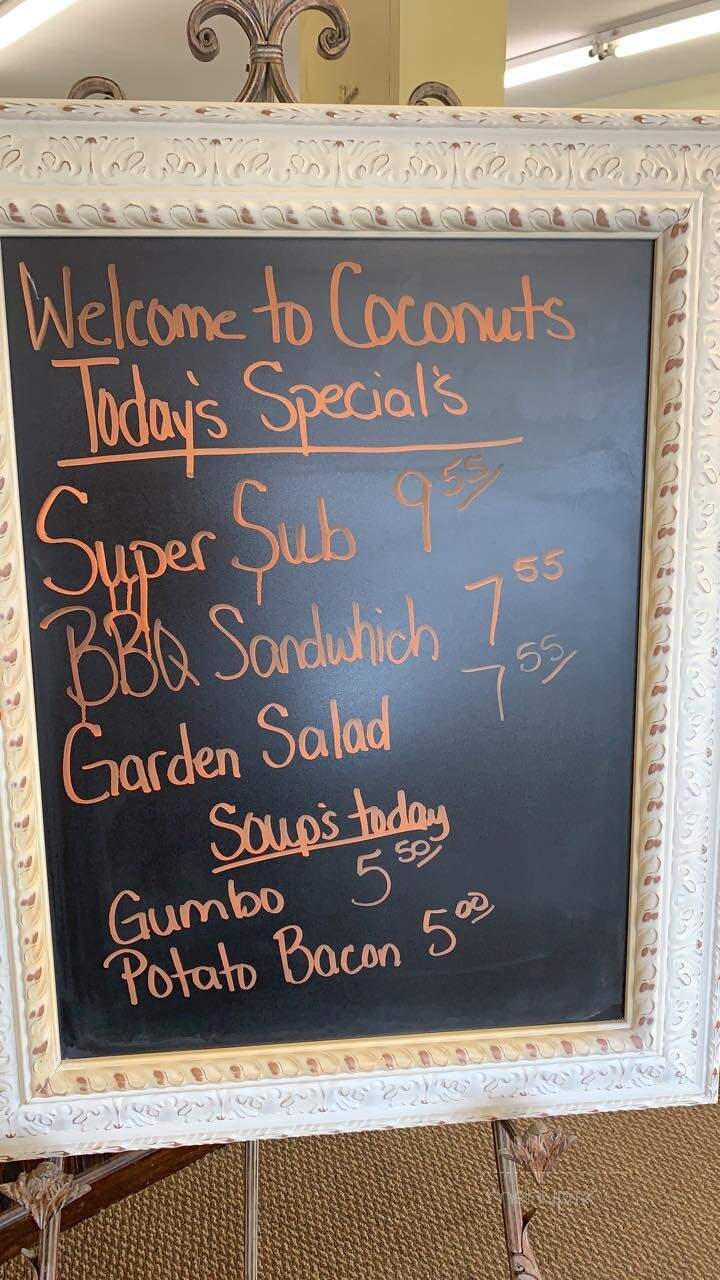 Welcome to Coconuts
Today's Special's
Super Sub 9 55
BBQ Sandwhich 7 55
Garden Salad 7 55
Soup's today
Gumbo 5 50
Potato Bacon 5 00